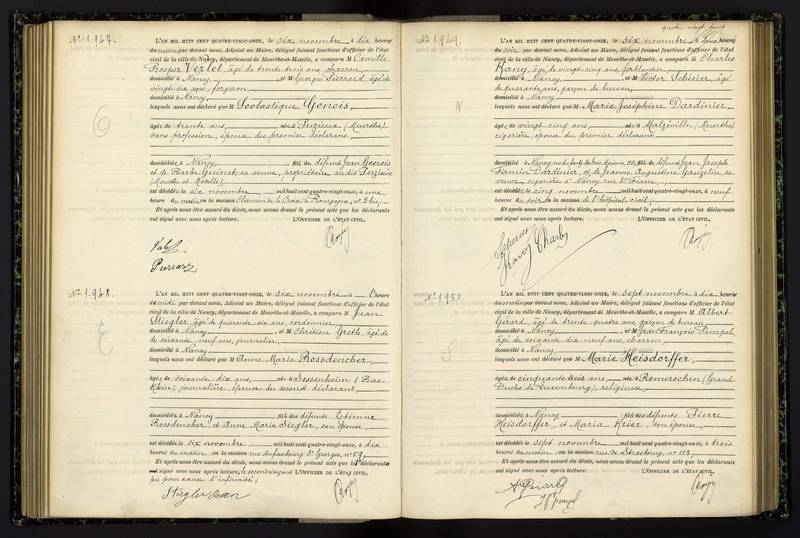 N° 1.947.
L'AN MIL HUIT CENT QUATRE-VINGT-ONZE, le six novembre à dix heures
du matin par devant nous, Adjoint au Maire, délégué faisant fonctions d'officier de l'état
civil de la ville de Nancy, département de Meurthe-et-Moselle, a comparu M Camille
Prosper âgé de trente trois ans, charron,
domicilié à Nancy, et M Georges Pierrard, âgé de
vingt six ans, forgeron,
domicilié à Nancy,
lesquels nous ont déclaré que M Scolastique Génois,
âgée de trente ans, née à Puzieux (Meurthe),
sans profession, épouse du premier déclarant,
domiciliée à Nancy, fille de défunt Jean Génois
et de Barbe sa veuve, propriétaire au dit Puzieux
(Meurthe et Moselle),
est décédée le six novembre mil huit cent quatre-vingt-onze, à une
heure du matin en la maison Chemin de la Croix de Bourgogne, n° 3 bis,
Et après nous être assuré du décès, nous avons dressé le présent acte que les déclarants
ont signé avec nous après lecture. L'OFFICIER DE L'ÉTAT CIVIL,
N° 1.948.
L'AN MIL HUIT CENT QUATRE-VINGT-ONZE, le six novembre à l'heure
de midi par devant nous, Adjoint au Maire, délégué faisant fonctions d'officier de l'état
civil de la ville de Nancy, département de Meurthe-et-Moselle, a comparu M Jean
Stiegler, âgé de quarante six ans, cordonnier,
domicilié à Nancy, et M Chrétien âgé de
de soixante neuf ans, journalier,
domicilié à Nancy,
lesquels nous ont déclaré que M Anne Marie Rossdencher,
âgée de soixante dix ans, née à Sessenheim (Bas-
Rhin), journalière, épouse du second déclarant,
domiciliée à Nancy fille des défunts Etienne
Rossdencher et Anne Marie Siegler, son épouse,
est décédée le six novembre mil huit cent quatre-vingt-onze, à dix
heures du matin en la maison rue du faubourg St Georges, n° 59,
Et après nous être assuré du décès, nous avons dressé le présent acte que les déclarants
ont signé avec nous après lecture, le second n'ayant L'OFFICIER DE L'ÉTAT CIVIL,
pu pour cause d'infirmité;
Stiegler Jean
N° 1.949.
L'AN MIL HUIT CENT QUATRE-VINGT-ONZE, le six novembre à deux heures
du soir par devant nous, Adjoint au Maire, délégué faisant fonctions d'officier de l'état
civil de la ville de Nancy, département de Meurthe-et-Moselle, a comparu M Charles
âgé de vingt cinq ans, ferblantier,
domicilié à Nancy, et M Victor Schérier, âgé
de quarante ans, garçon de bureau,
domicilié à Nancy,
lesquels nous ont déclaré que M Marie Joséphine Dardinier
N
âgée de vingt cinq ans, née à Malzéville (Meurthe),
cigarière, épouse du premier déclarant,
domiciliée à Nancy, fille de défunt Jean Joseph
Firmin Dardinier, et de Jeanne Augustine sa
veuve,
est décédée le cinq novembre mil huit cent quatre-vingt-onze, à neuf
heures du soir en la maison de l'hôpital civil;
Et après nous être assuré du décès, nous avons dressé le présent acte que les déclarants
ont signé avec nous après lecture. L'OFFICIER DE L'ÉTAT CIVIL,
N° 1950
L'AN MIL HUIT CENT QUATRE-VINGT-ONZE, le sept novembre à dix heures
du matin par devant nous, Adjoint au Maire, délégué faisant fonctions d'officier de l'état
civil de la ville de Nancy, département de Meurthe-et-Moselle, a comparu M Albert
Gérard, âgé de trente quatre ans, garçon de bureau,
domicilié à Nancy, et M Jean François Pimpel,
âgé de soixante dix neuf ans, charron,
domicilié à Nancy,
lesquels nous ont déclaré que M Marie Heisdorffer,
S
âgée de cinquante trois ans née à Remerschen (Grand
Duché de Luxembourg), religieuse,
domiciliée à Nancy fille des défunts Pierre
Heisdorffer, et Maria Krier, son épouse,
est décédée le sept novembre mil huit cent quatre-vingt-onze, à trois
heures du matin en la maison rue de Strasbourg, n° 113,
Et après nous être assuré du décès, nous avons dressé le présent acte que les déclarants
ont signé avec nous après lecture. L'OFFICIER DE L'ÉTAT CIVIL,